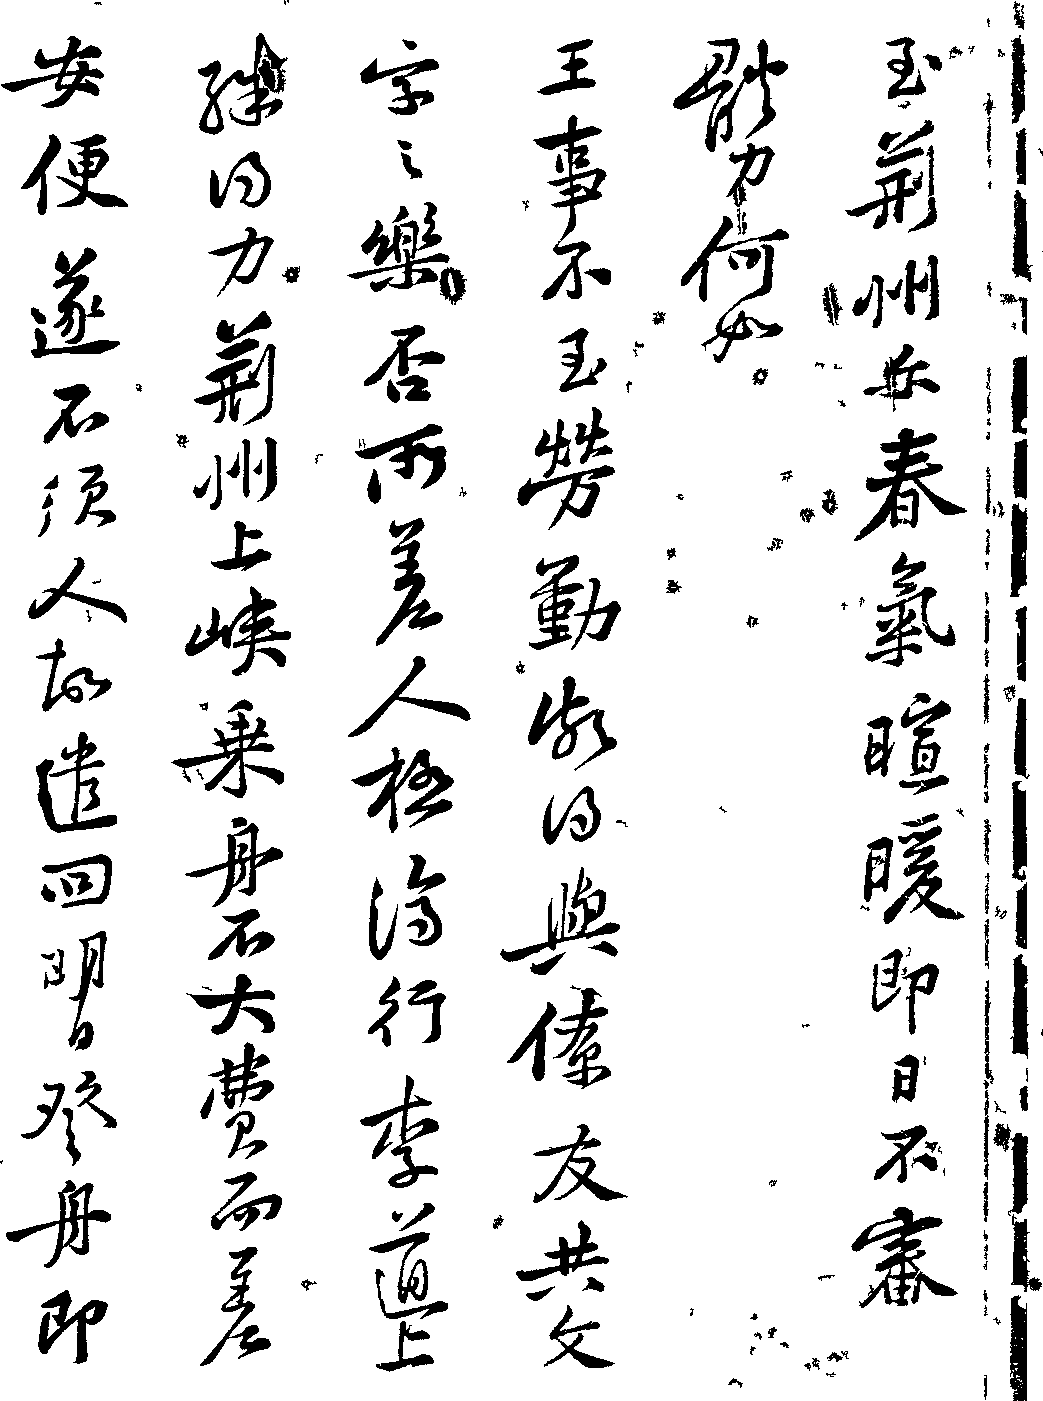 至荊州無春氣暄暖即日不審
體力何如
王事不至勞勤能得與僚友共文
字之樂否所差人極濟行李道上
殊得力荊州上峽乘舟不大費而差
安便遂不須人故遣回明日登舟即